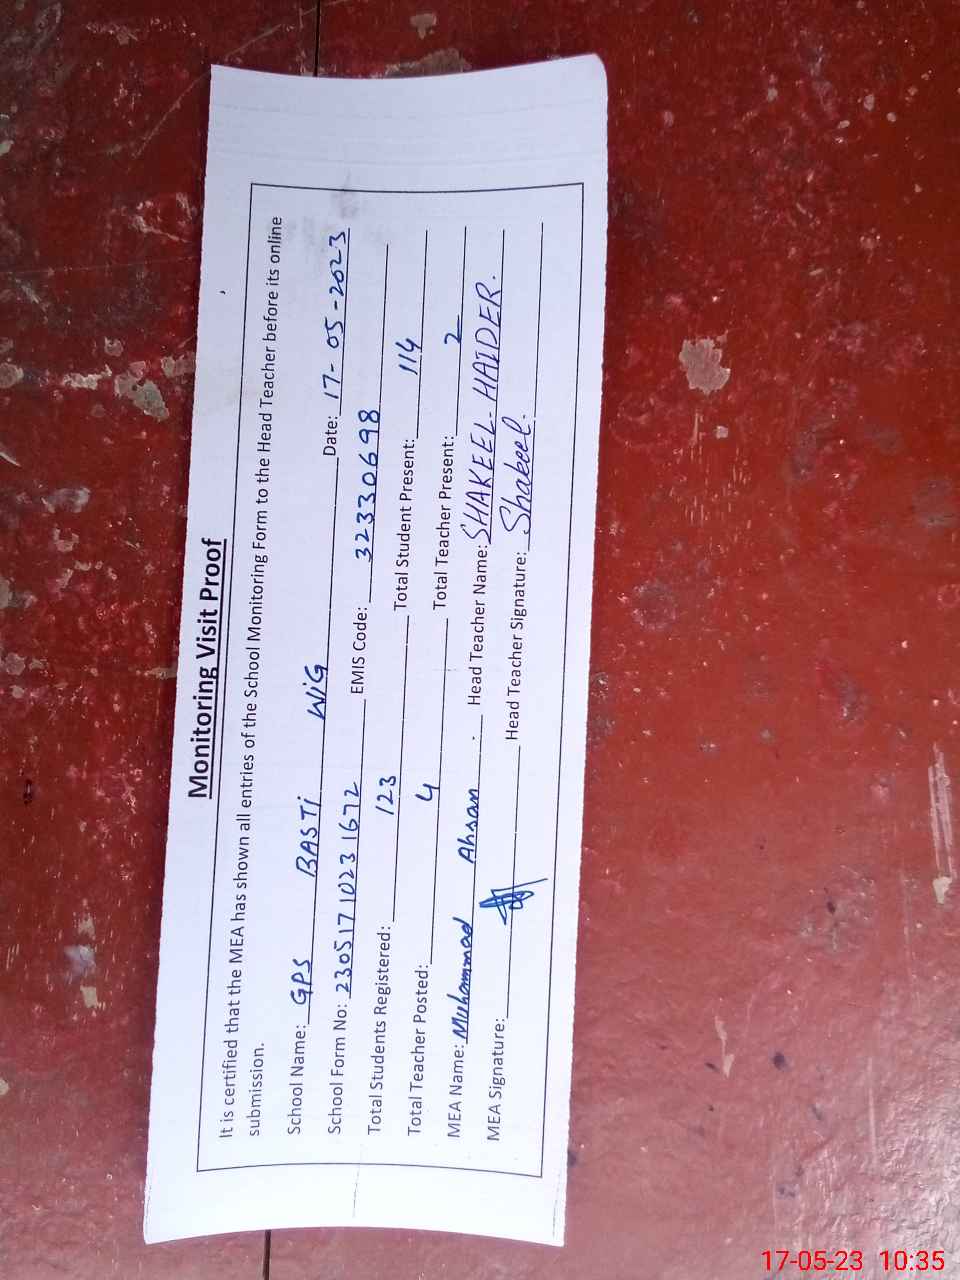 Monitoring Visit Proof
It is certified that the MEA has shown all entries of the School Monitoring Form to the Head Teacher before its online
submission.
School Name: GPS BASTi WiG Date: 17-05-2023
School Form No: 230517 1023 1672 EMIS Code: 32330698
Total Students Registered: 123 Total Student Present: 114
Total Teacher Posted: 4 Total Teacher Present: 2
MEA Name: Muhammad Ahsan. Head Teacher Name: SHAKEEL HAIDER.
MEA Signature: Head Teacher Signature: Shakeel.
17-05-23 10:35